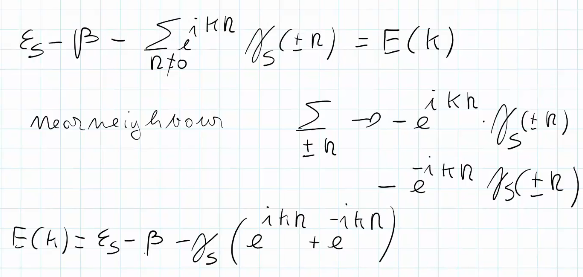 ε_s − β − Σ_{n≠0} e^{ikn} γ_s(±n) = E(k)
near neighbour Σ_{±n} → − e^{ikn} · γ_s(±n)
− e^{−ikn} γ_s(±n)
E(k) = ε_s − β − γ_s (e^{ikn} + e^{−ikn})